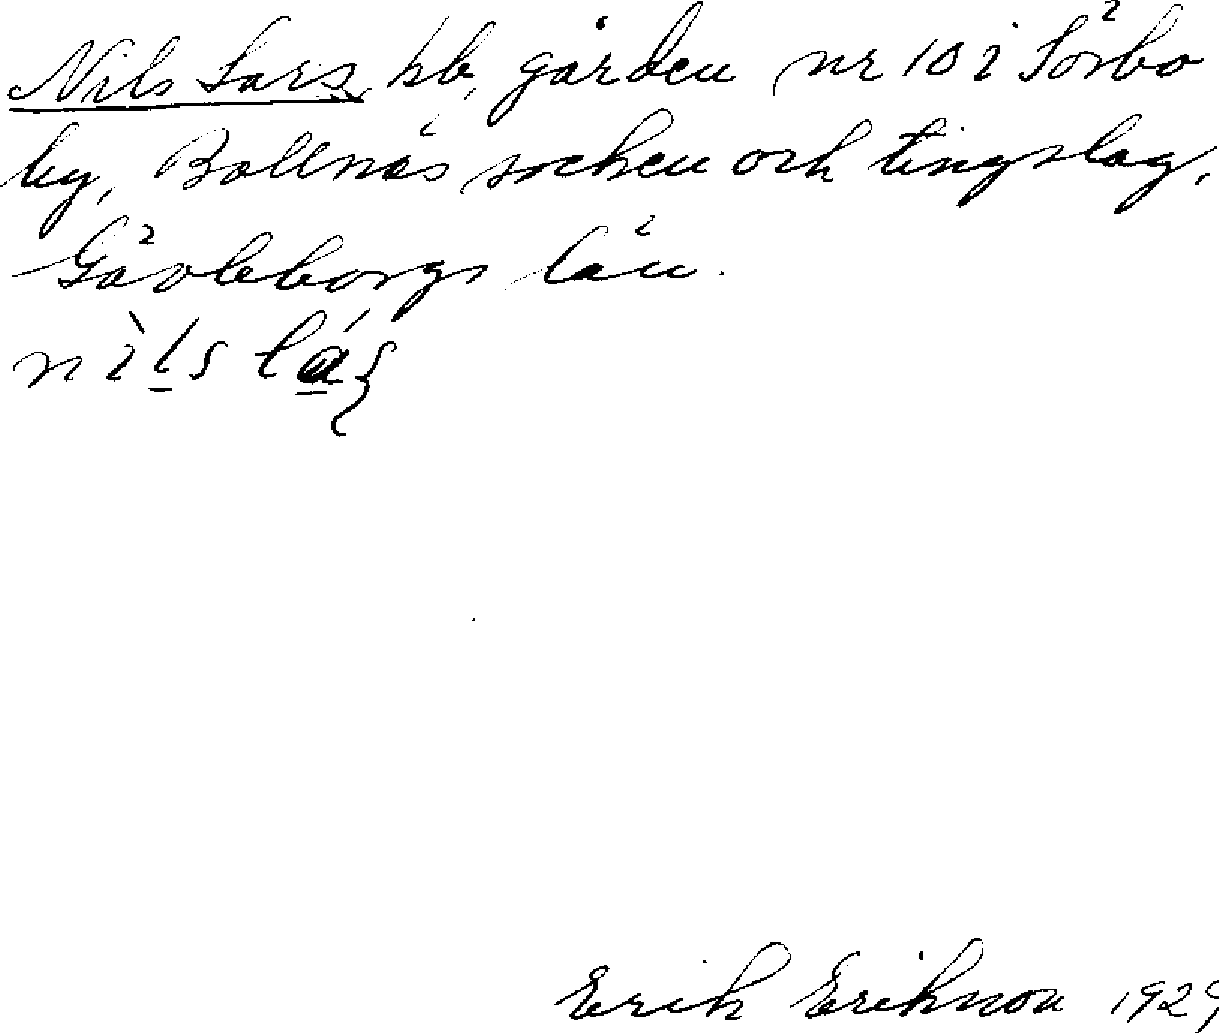 Nils Lars, hb, gården nr 10 i Sörbo
by, Bollnäs socken och tingslag,
Gävleborgs län.
nìls lás
Erik Erikson 1929